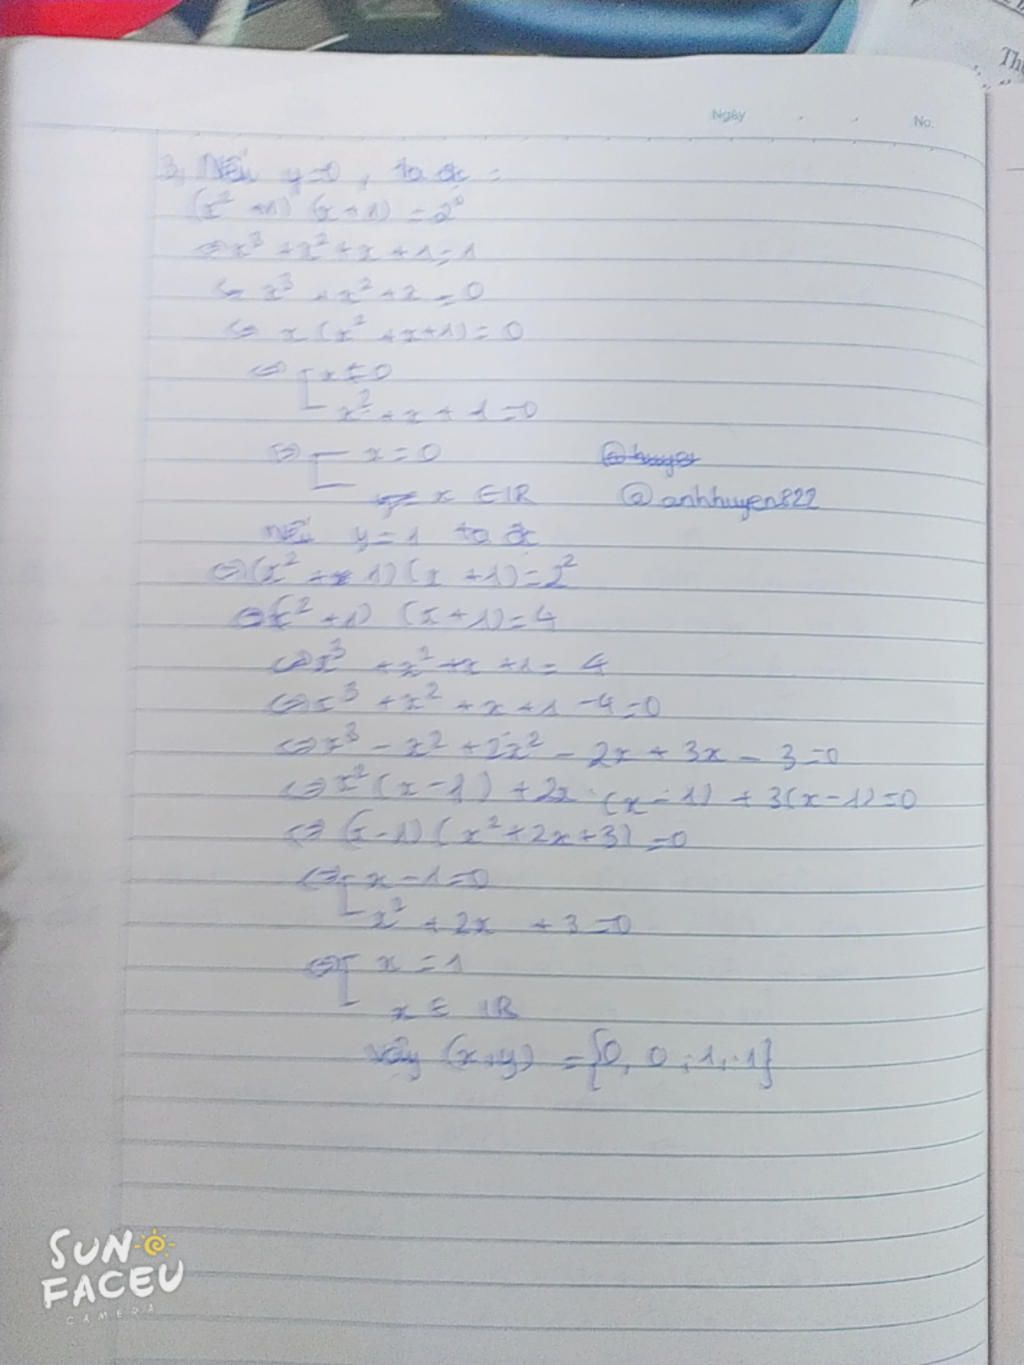 Th
Ngày No.
3, Nếu y=0, ta đc :
(x² +1) (x+1) = 2⁰
⇔ x³ + x² + x + 1 = 1
⇔ x³ + x² + x = 0
⇔ x (x² + x+1) = 0
⇔ [ x = 0
x² + x + 1 = 0
⇔ [ x = 0
x ∈ IR @anhhuyen822
Nếu y = 1 ta đc
⇔ (x² + 1) (x + 1) = 2²
⇔ (x² + 1) (x + 1) = 4
⇔ x³ + x² + x + 1 = 4
⇔ x³ + x² + x + 1 - 4 = 0
⇔ x³ - x² + 2x² - 2x + 3x - 3 = 0
⇔ x² (x - 1) + 2x . (x - 1) + 3(x - 1) = 0
⇔ (x - 1) (x² + 2x + 3) = 0
⇔ [ x - 1 = 0
x² + 2x + 3 = 0
⇔ [ x = 1
x ∈ IR
Vậy (x,y) = {0, 0 ; 1, 1}
SUN
FACEU
CAMERA